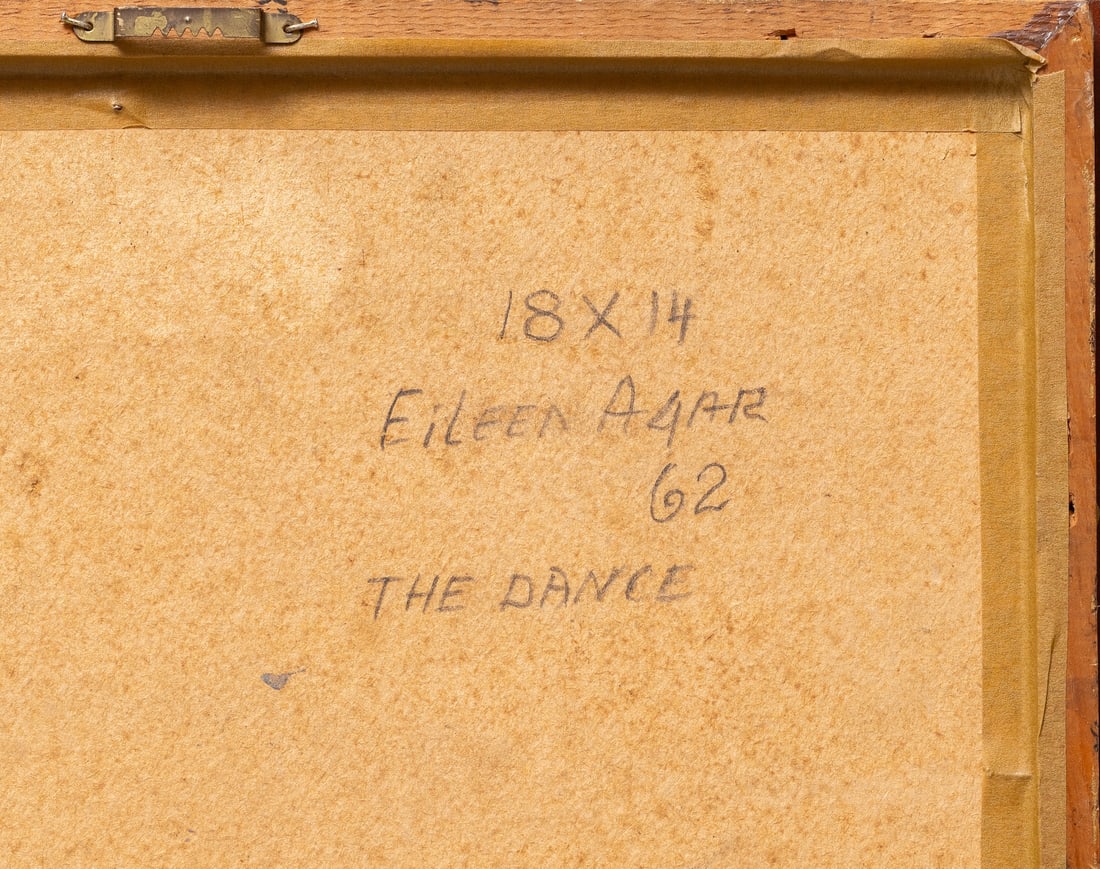 18 X 14
EiLEEN AgAR
62
THE DANCE